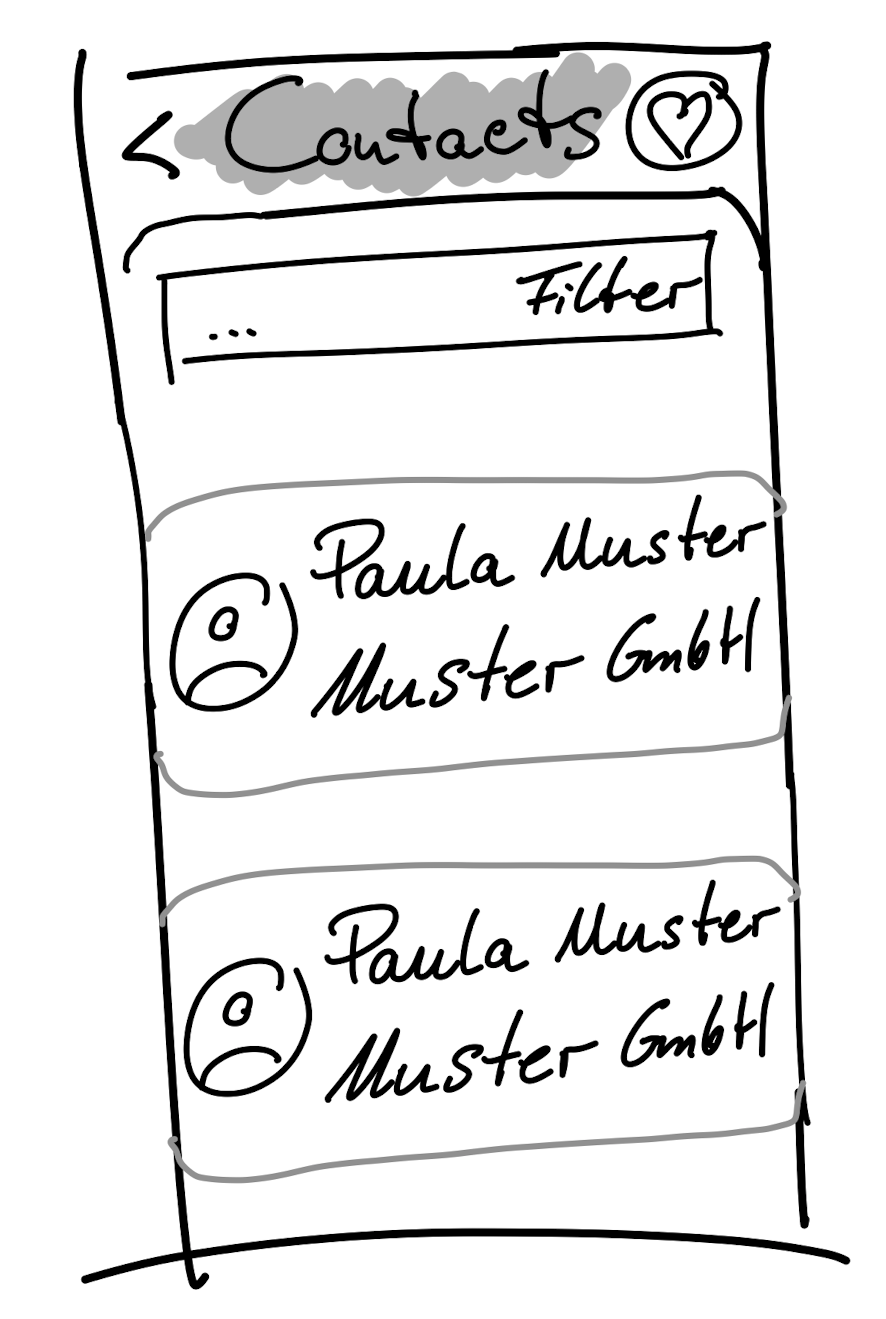 < Contacts
... Filter
Paula Muster
Muster GmbH
Paula Muster
Muster GmbH